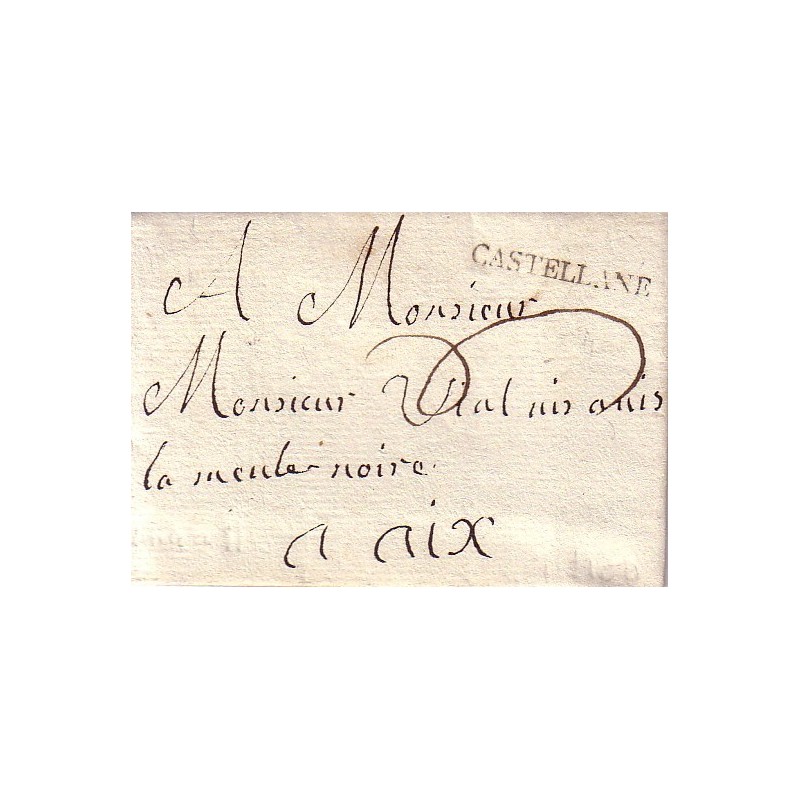 CASTELLANE
A Monsieur
Monsieur Vial vis avis
la meule noire
a aix